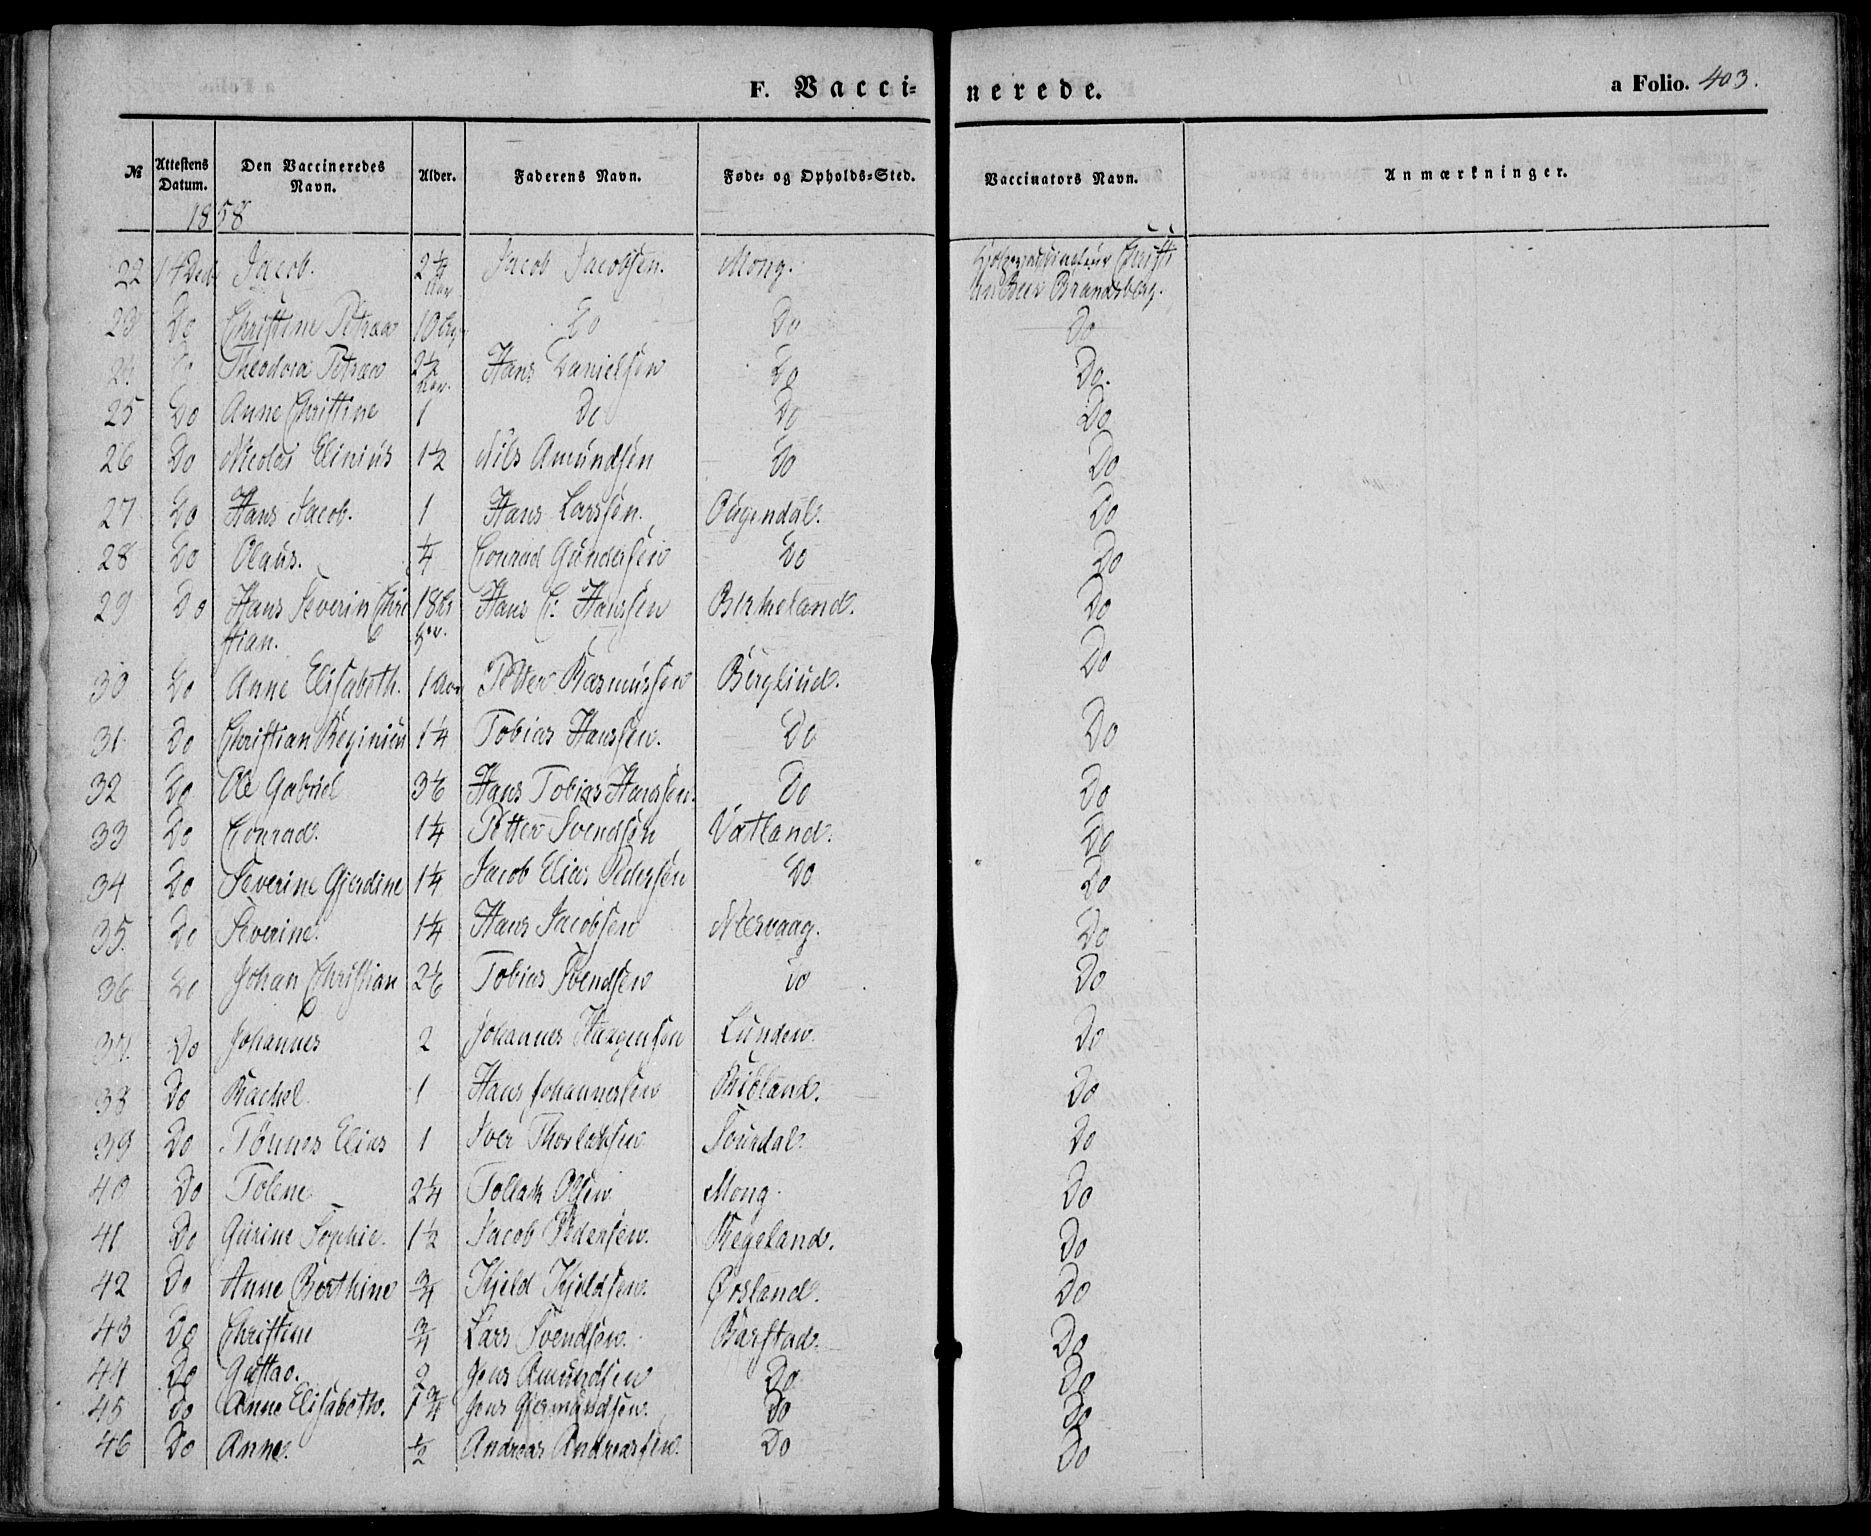 F. Vacci-nerede.
a Folio. 403.
№ Attestens Datum. Den Vaccineredes Navn. Alder. Faderens Navn. Føde- og Opholds-Sted. Vaccinators Navn. Anmærkninger.
1858
22 14 Dec Jacob. 2½ Aar Jacob Jacobsen. Mong.
Brandsberg.
23 Do Christine Petrea 10 Do Do Do
24 Do Theodora Petrea 2½ Aar. Hans Danielsen Do Do.
25 Do Anne Christine 1 Do Do Do
26 Do Nicolai Elinius 1½ Nils Amundsen Do Do
27 Do Hans Jacob. 1 Hans Larssen. Ougendal. Do
28 Do Olaus. ¼ Conrad Gundersen Do Do
29 Do Hans Severin Chri 18 Hans C. Hanssen Birkeland. Do
stian.
30 Do Anne Elisabeth. 1 Aar Petter Rasmussen Bergliud. Do
31 Do Christian Reginius 1¼ Tobias Hanssen. Do Do
32 Do Ole Gabriel 3⅙ Hans Tobias Hanssen. Do Do
33 Do Conrad. 1¼ Petter Svendsen Vatland. Do
34 Do Severine Gjerdine 1¼ Jacob Elias Pedersen Do Do
35. Do Severine. 1¼ Hans Jacobsen Nesvaag. Do
36 Do Johan Christian 2⅙ Tobias Svendsen Do Do
37. Do Johannes 2 Johannes Lunden. Do
38 Do Rachel. 1 Hans Johannessen Midland. Do
39 Do Tønnes Elias 1 Iver Thorlaksen Do
40 Do Tolene 2¼ Tollak Olsen Mong. Do
41 Do Gurine Sophie. 1½ Jacob Pedersen. Regeland. Do
42 Do Anne Berthine ¾ Kjeld Kjeldsen. Ørsland. Do
43 Do Christine ¾ Lars Svendsen. Barstad. Do
44 Do Gustav. 2 Jens Amundsen Do Do
45 Do Anne Elisabeth. 1¾ Jens Do Do
46 Do Anne. ½ Andreas Andreassen. Do Do